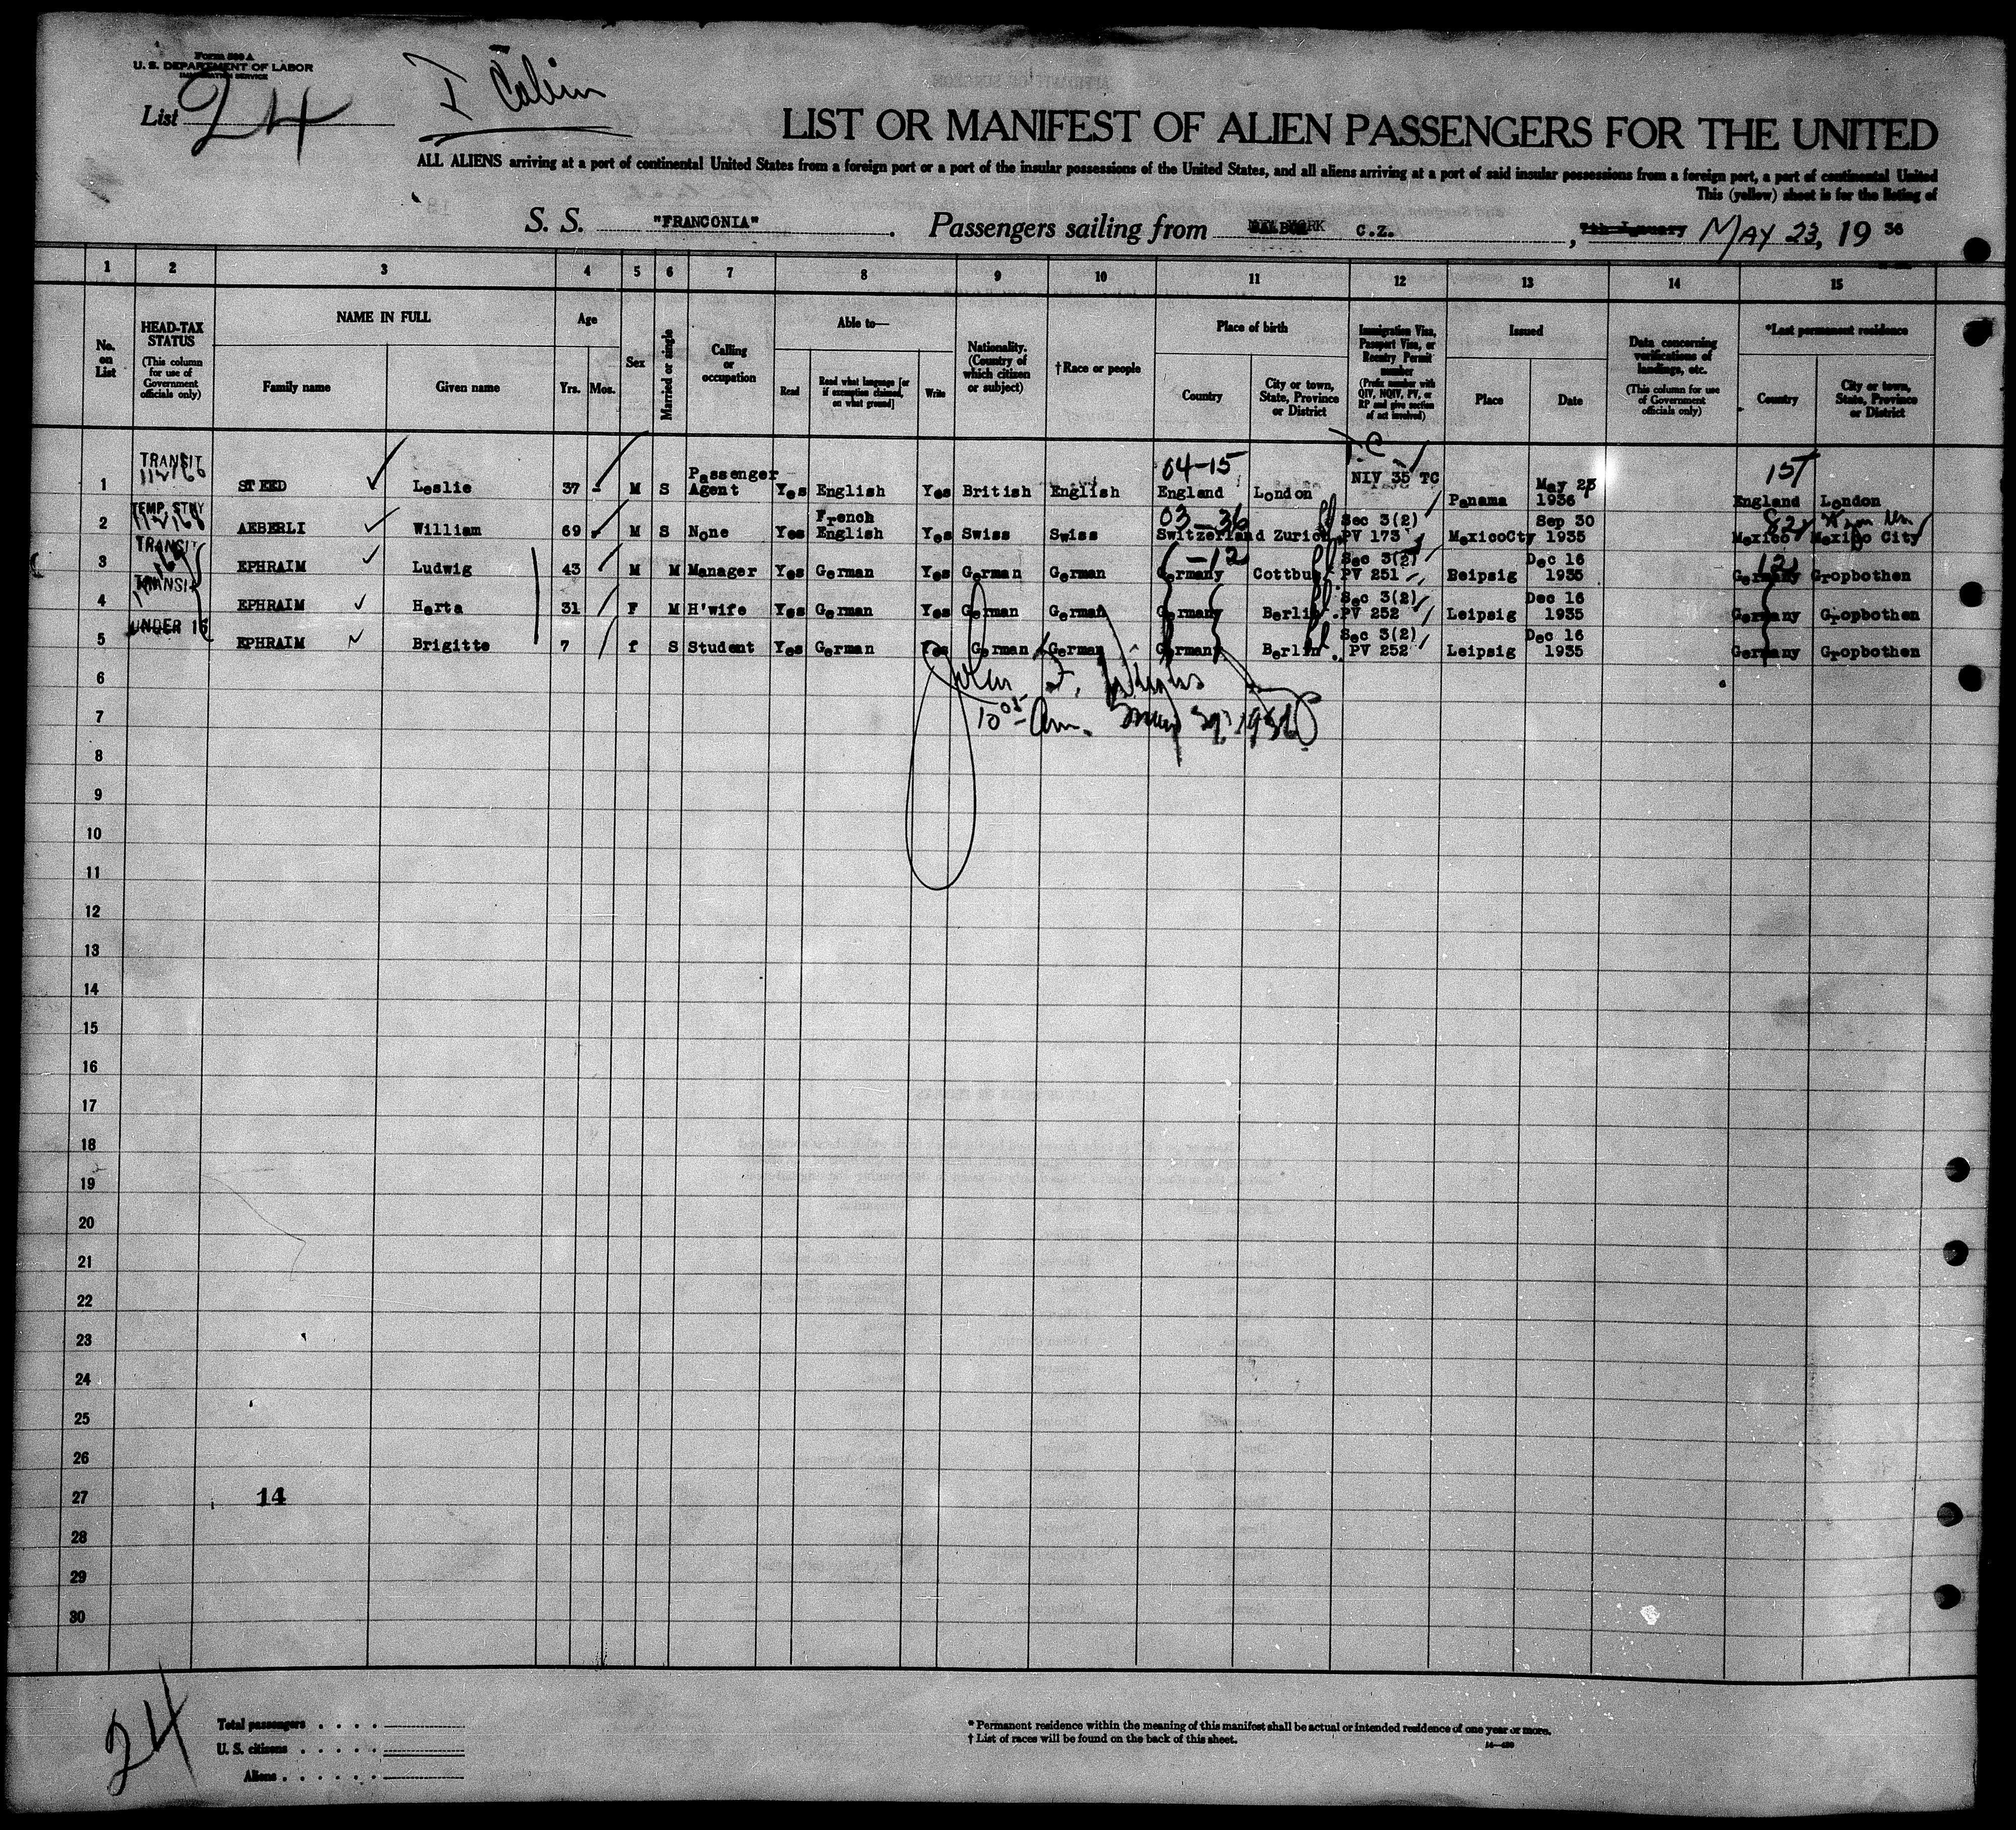 Form 500 A
U. S. DEPARTMENT OF LABOR
IMMIGRATION SERVICE
List 24
I Cabin
LIST OR MANIFEST OF ALIEN PASSENGERS FOR THE UNITED
ALL ALIENS arriving at a port of continental United States from a foreign port or a port of the insular possessions of the United States, and all aliens arriving at a port of said insular possessions from a foreign port, a port of continental United
This (yellow) sheet is for the listing of
S. S. "FRANCONIA". Passengers sailing from BALBOA C.Z., 7th January MAY 23, 19 36
1 2 3 4 5 6 7 8 9 10 11 12 13 14 15
No. on List
HEAD-TAX STATUS (This column for use of Government officials only)
NAME IN FULL Family name Given name
Age Yrs. Mos.
Sex
Married or single
Calling or occupation
Able to— Read Read what language [or if exemption claimed, on what ground] Write
Nationality. (Country of which citizen or subject)
†Race or people
Place of birth Country City or town, State, Province or District
Immigration Visa, Passport Visa, or Reentry Permit number (Prefix number with QIV, NQIV, PV, or RP and give section of act involved)
Issued Place Date
Data concerning verifications of landings, etc. (This column for use of Government officials only)
*Last permanent residence Country City or town, State, Province or District
1 TRANSIT STEED Leslie 37 - M S Passenger Agent Yes English Yes British English 04-15 England London T.C NIV 35 TC Panama May 23 1936 15T England London
2 TEMP. STAY AEBERLI William 69 M S None Yes French English Yes Swiss Swiss 03-36 Switzerland Zurich Sec 3(2) PV 173 MexicoCty Sep 30 1935 82 Mexico Mexico City
3 TRANSIT EPHRAIM Ludwig 43 M M Manager Yes German Yes German German -12 Germany Cottbus Sec 3(2) PV 251 Beipsig Dec 16 1935 12 Germany Gropbothen
4 TRANSIT EPHRAIM Herta 31 F M H'wife Yes German Yes German German Germany Berlin Sec 3(2) PV 252 Leipsig Dec 16 1935 Germany Gropbothen
5 UNDER 16 EPHRAIM Brigitte 7 f S Student Yes German Yes German German Germany Berlin Sec 3(2) PV 252 Leipsig Dec 16 1935 Germany Gropbothen
6
7 10 05 Am.
8
9
10
11
12
13
14
15
16
17
18
19
20
21
22
23
24
25
26
27 14
28
29
30
24
Total passengers . . . .
U. S. citizens . . . . .
Aliens . . . . . .
* Permanent residence within the meaning of this manifest shall be actual or intended residence of one year or more.
† List of races will be found on the back of this sheet.